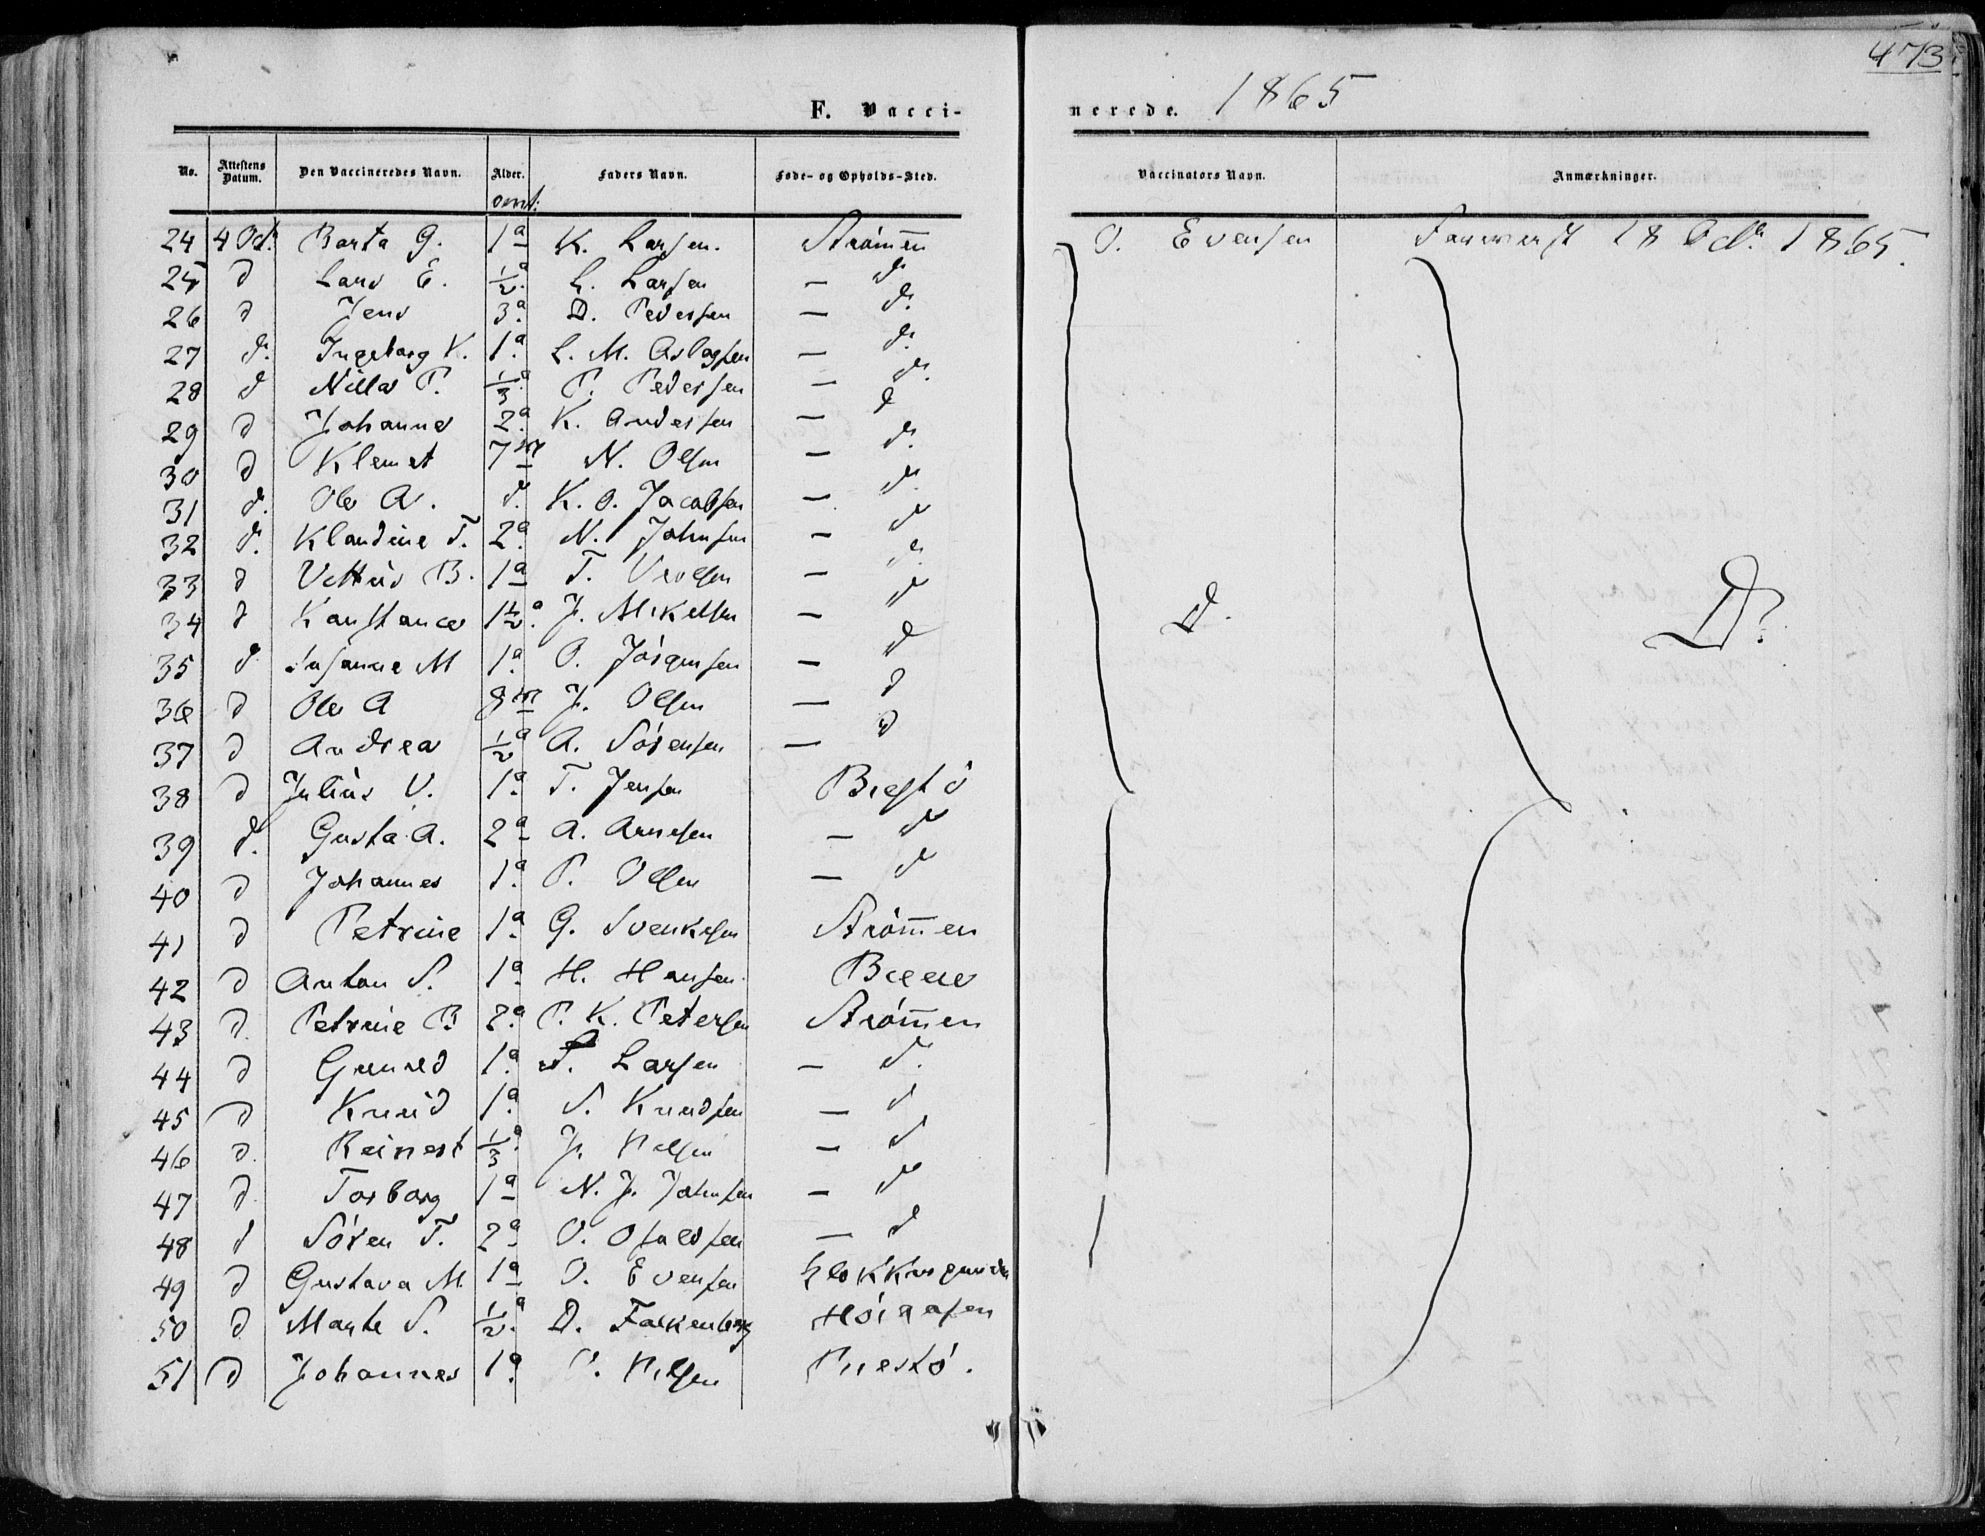 473
F. Vacci-nerede. 1865
No. Attestens Datum. Den Vaccineredes Navn. Alder. Faders Navn. Føde- og Opholds-Sted. Vaccinators Navn. Anmærkninger.
omt:
24 4 Oct. Berta G. 1 a K. Larsen. Strømmen O. Evensen 18 Octr 1865.
25 d Lars E. 1/2 a L. Larsen — dr
26 d Jens 3 a D. Pedersen — dr.
27 dr. Ingeborg K. 1 a L. M. Aslagsen — dr.
28 d Nille P. 1/3 a P. Pedersen — dr.
29 d Johanne 2 a K. Andersen — d
30 d Klemet 7 M N. Olsen — dr.
31 d. Ole A. d. K. O. Jacobsen — dr.
32 d. Klaudine T. 2 a N. Johnsen — dr
33 d B. 1 a T. — dr.
34 d Konstance 1 1/2 a J. Mikelsen — dr d. D?
35 d Susanne M 1 a O. Jörgensen — d
36 d Ole A 8 M J. Olsen — d
37 d Andrea 1/2 a A. Sörensen — d
38 d Julius V. 1 a T. Jensen
39 d. Gusta A. 2 a A. Arnesen — dr
40 d Johannes 1 a P. Olsen — dr
41 d Petrine 1 a G. Svenksen Strømmen
42 d Anton S. 1 a H. Hansen.
43 d Petrine B 2 a P. K. Petersen Strømmen
44 d 1 a Larsen — d.
45 d Knud 1 a S. Knudsen — d
46 d. Reinert 1/3 a J. — d
47 d Torborg 1 a N. J. Johnsen — dr
48 d Sören T. 2 a O. — d
49 d Gustava M 1 a O. Evensen
50 d Marte S. 1/2 a D. Falkenberg Höiaasen
51 d Johannes 1 a